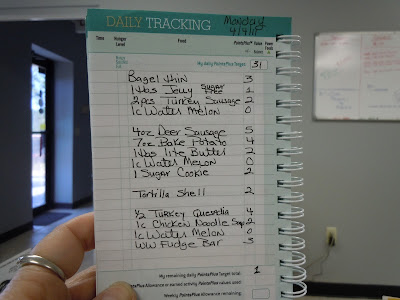 DAILY TRACKING
Monday
4/9/11
Time Hunger Level Food PointsPlus Value
My daily PointsPlus Target: 31
Bagel thin 3
1 tbs Jelly Sugar Free 1
2pcs Turkey Sausage 2
1c Water Melon 0
4oz Deer Sausage 5
7oz Bake Potato 4
1 tbs lite Butter 2
1c Water Melon 0
1 Sugar Cookie 2
Tortilla Shell 2
1/2 Turkey Quesadia 4
1c Chicken Noodle Soup 2
1c Water Melon 0
WW Fudge Bar 3
My remaining daily PointsPlus Target total: 1
PointsPlus Allowance or earned activity PointsPlus values used:
Weekly PointsPlus Allowance remaining: